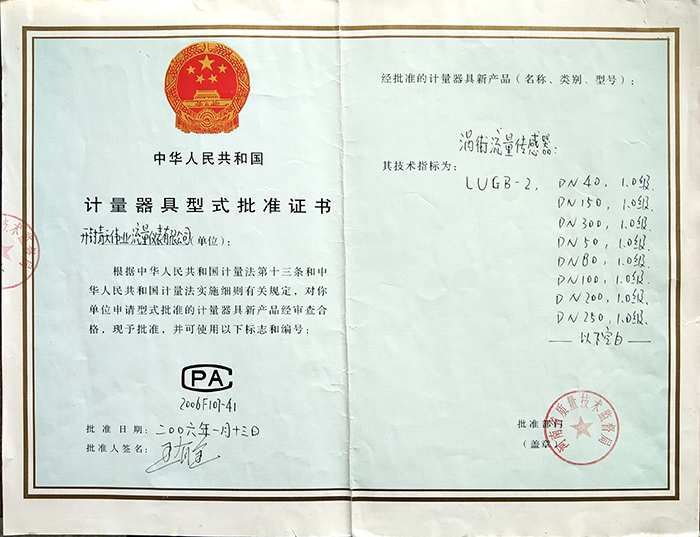 中华人民共和国
计量器具型式批准证书
开封青天伟业流量仪表有限公司(单位):
根据中华人民共和国计量法第十三条和中
华人民共和国计量法实施细则有关规定，对你
单位申请型式批准的计量器具新产品经审查合
格，现予批准、并可使用以下标志和编号:
CPA
2006F107-41
批准日期: 二00六年一月十三日
批准人签名:
经批准的计量器具新产品(名称、类别、型号):
涡街流量传感器:
其技术指标为:
LUGB-2, DN40, 1.0级.
DN150, 1.0级.
DN300, 1.0级.
DN50, 1.0级.
DN80, 1.0级.
DN100, 1.0级.
DN200, 1.0级.
DN250, 1.0级.
—以下空白—
批准部门
(盖章)
河南省质量技术监督局